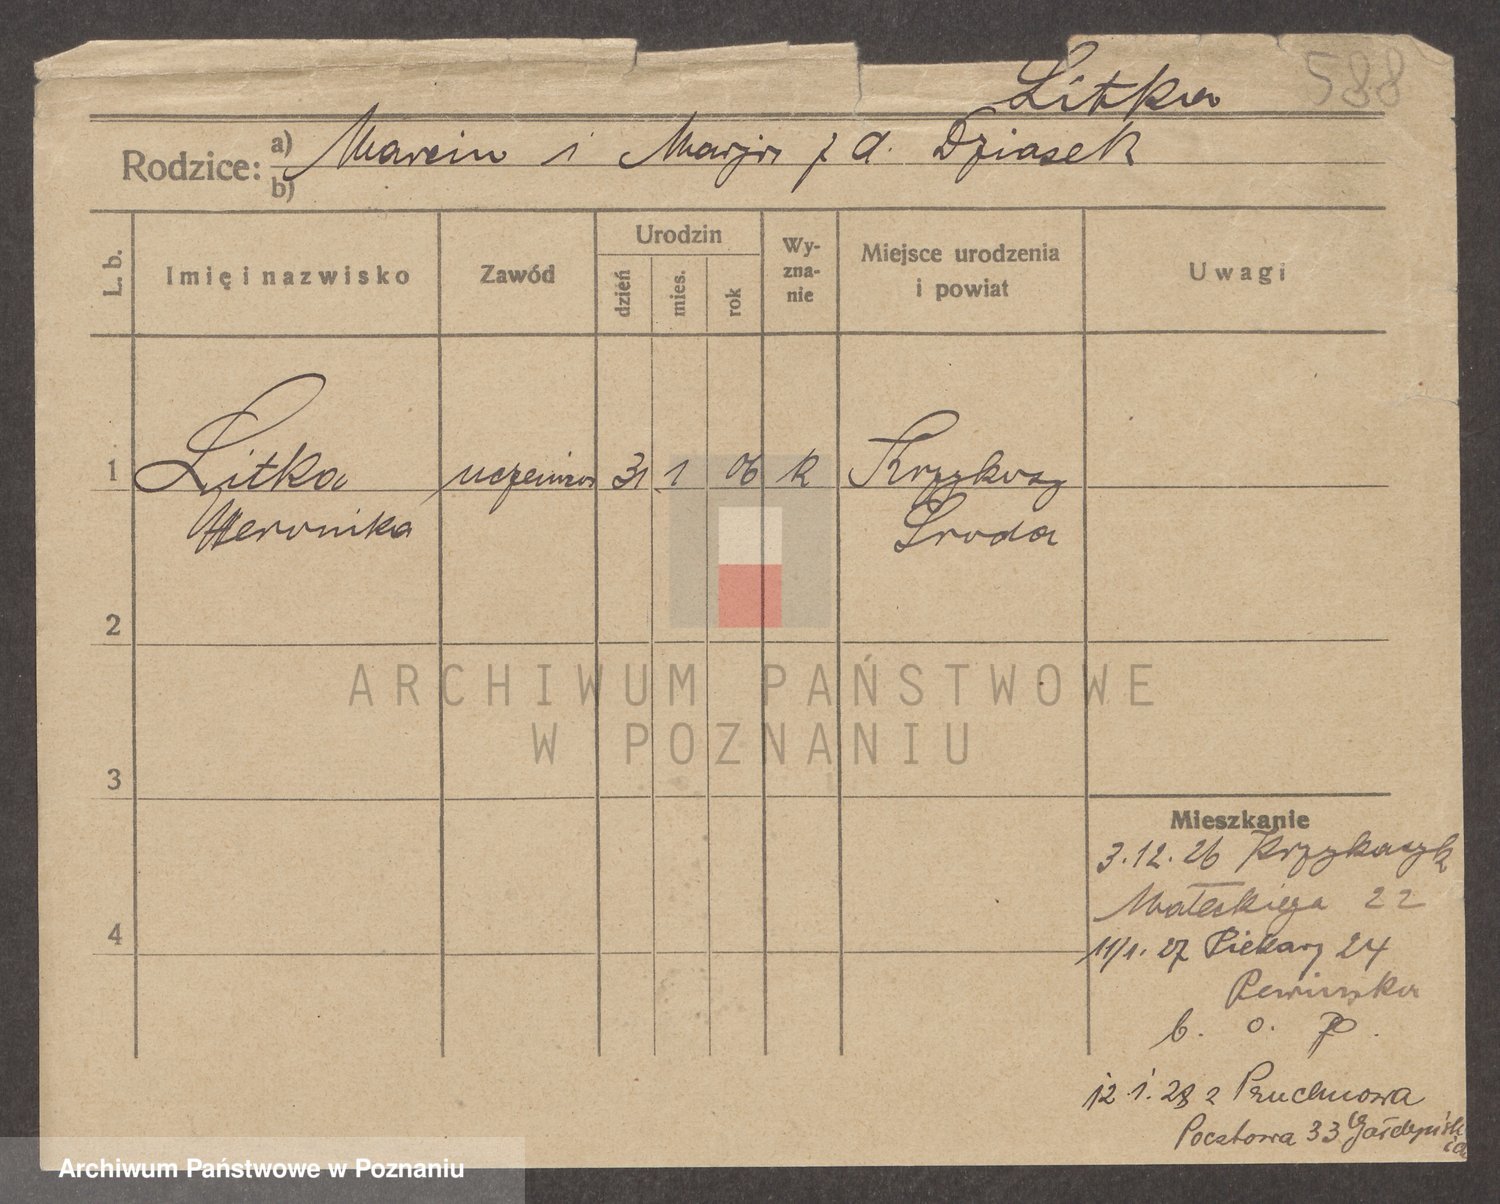 588
Litka
Rodzice: a) Marcin i Marja z d. Dziasek
b)
L. b.
Imię i nazwisko
Zawód
Urodzin
dzień
mies.
rok
Wy-
zna-
nie
Miejsce urodzenia
i powiat
Uwagi
1 Litka uczenica 31 1 06 k Krzykosy
Weronika Środa
2
3
4
Mieszkanie
3.12.26
22
11/1. 27 Piekary 24
b. o.
12 1. 28 z
Pocztowa 33
ARCHIWUM PAŃSTWOWE
W POZNANIU
Archiwum Państwowe w Poznaniu